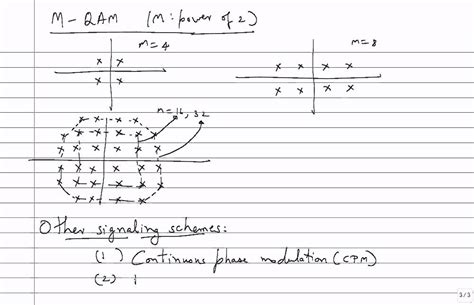 M-QAM (M: power of 2)
M=4
M=8
M=16, 32
Other signaling schemes:
(1) Continuous phase modulation (CPM)
(2)
3/3